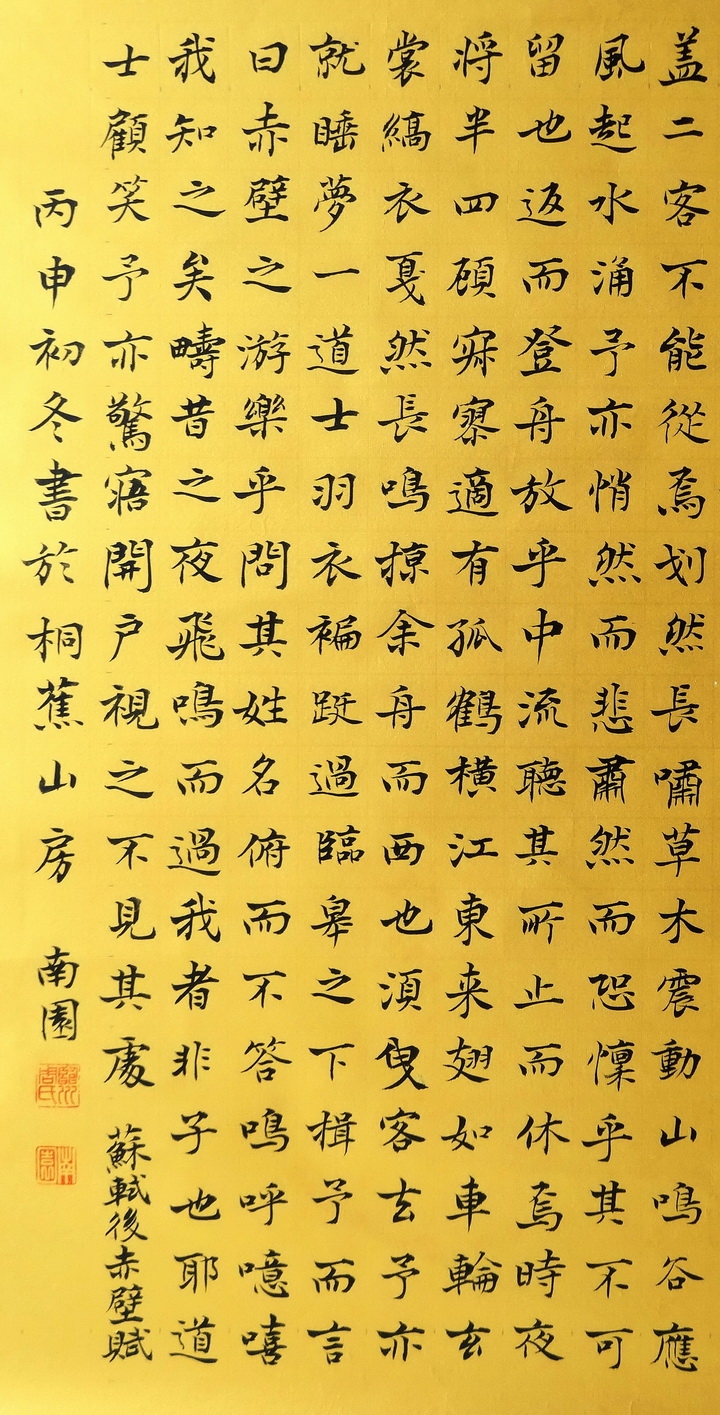 盖二客不能從焉划然長嘯草木震動山鳴谷應
風起水涌予亦悄然而悲肅然而恐懍乎其不可
留也返而登舟放乎中流聽其所止而休焉時夜
將半四顧寂寥適有孤鶴橫江東来翅如車輪玄
裳縞衣戛然長鳴掠余舟而西也須臾客去予亦
就睡夢一道士羽衣褊跹過臨皋之下揖予而言
曰赤壁之游樂乎問其姓名俯而不答鳴呼噫嘻
我知之矣疇昔之夜飛鳴而過我者非子也耶道
士顧笑予亦驚寤開户視之不見其處 蘇軾後赤壁賦
丙申初冬書於桐蕉山房 南園